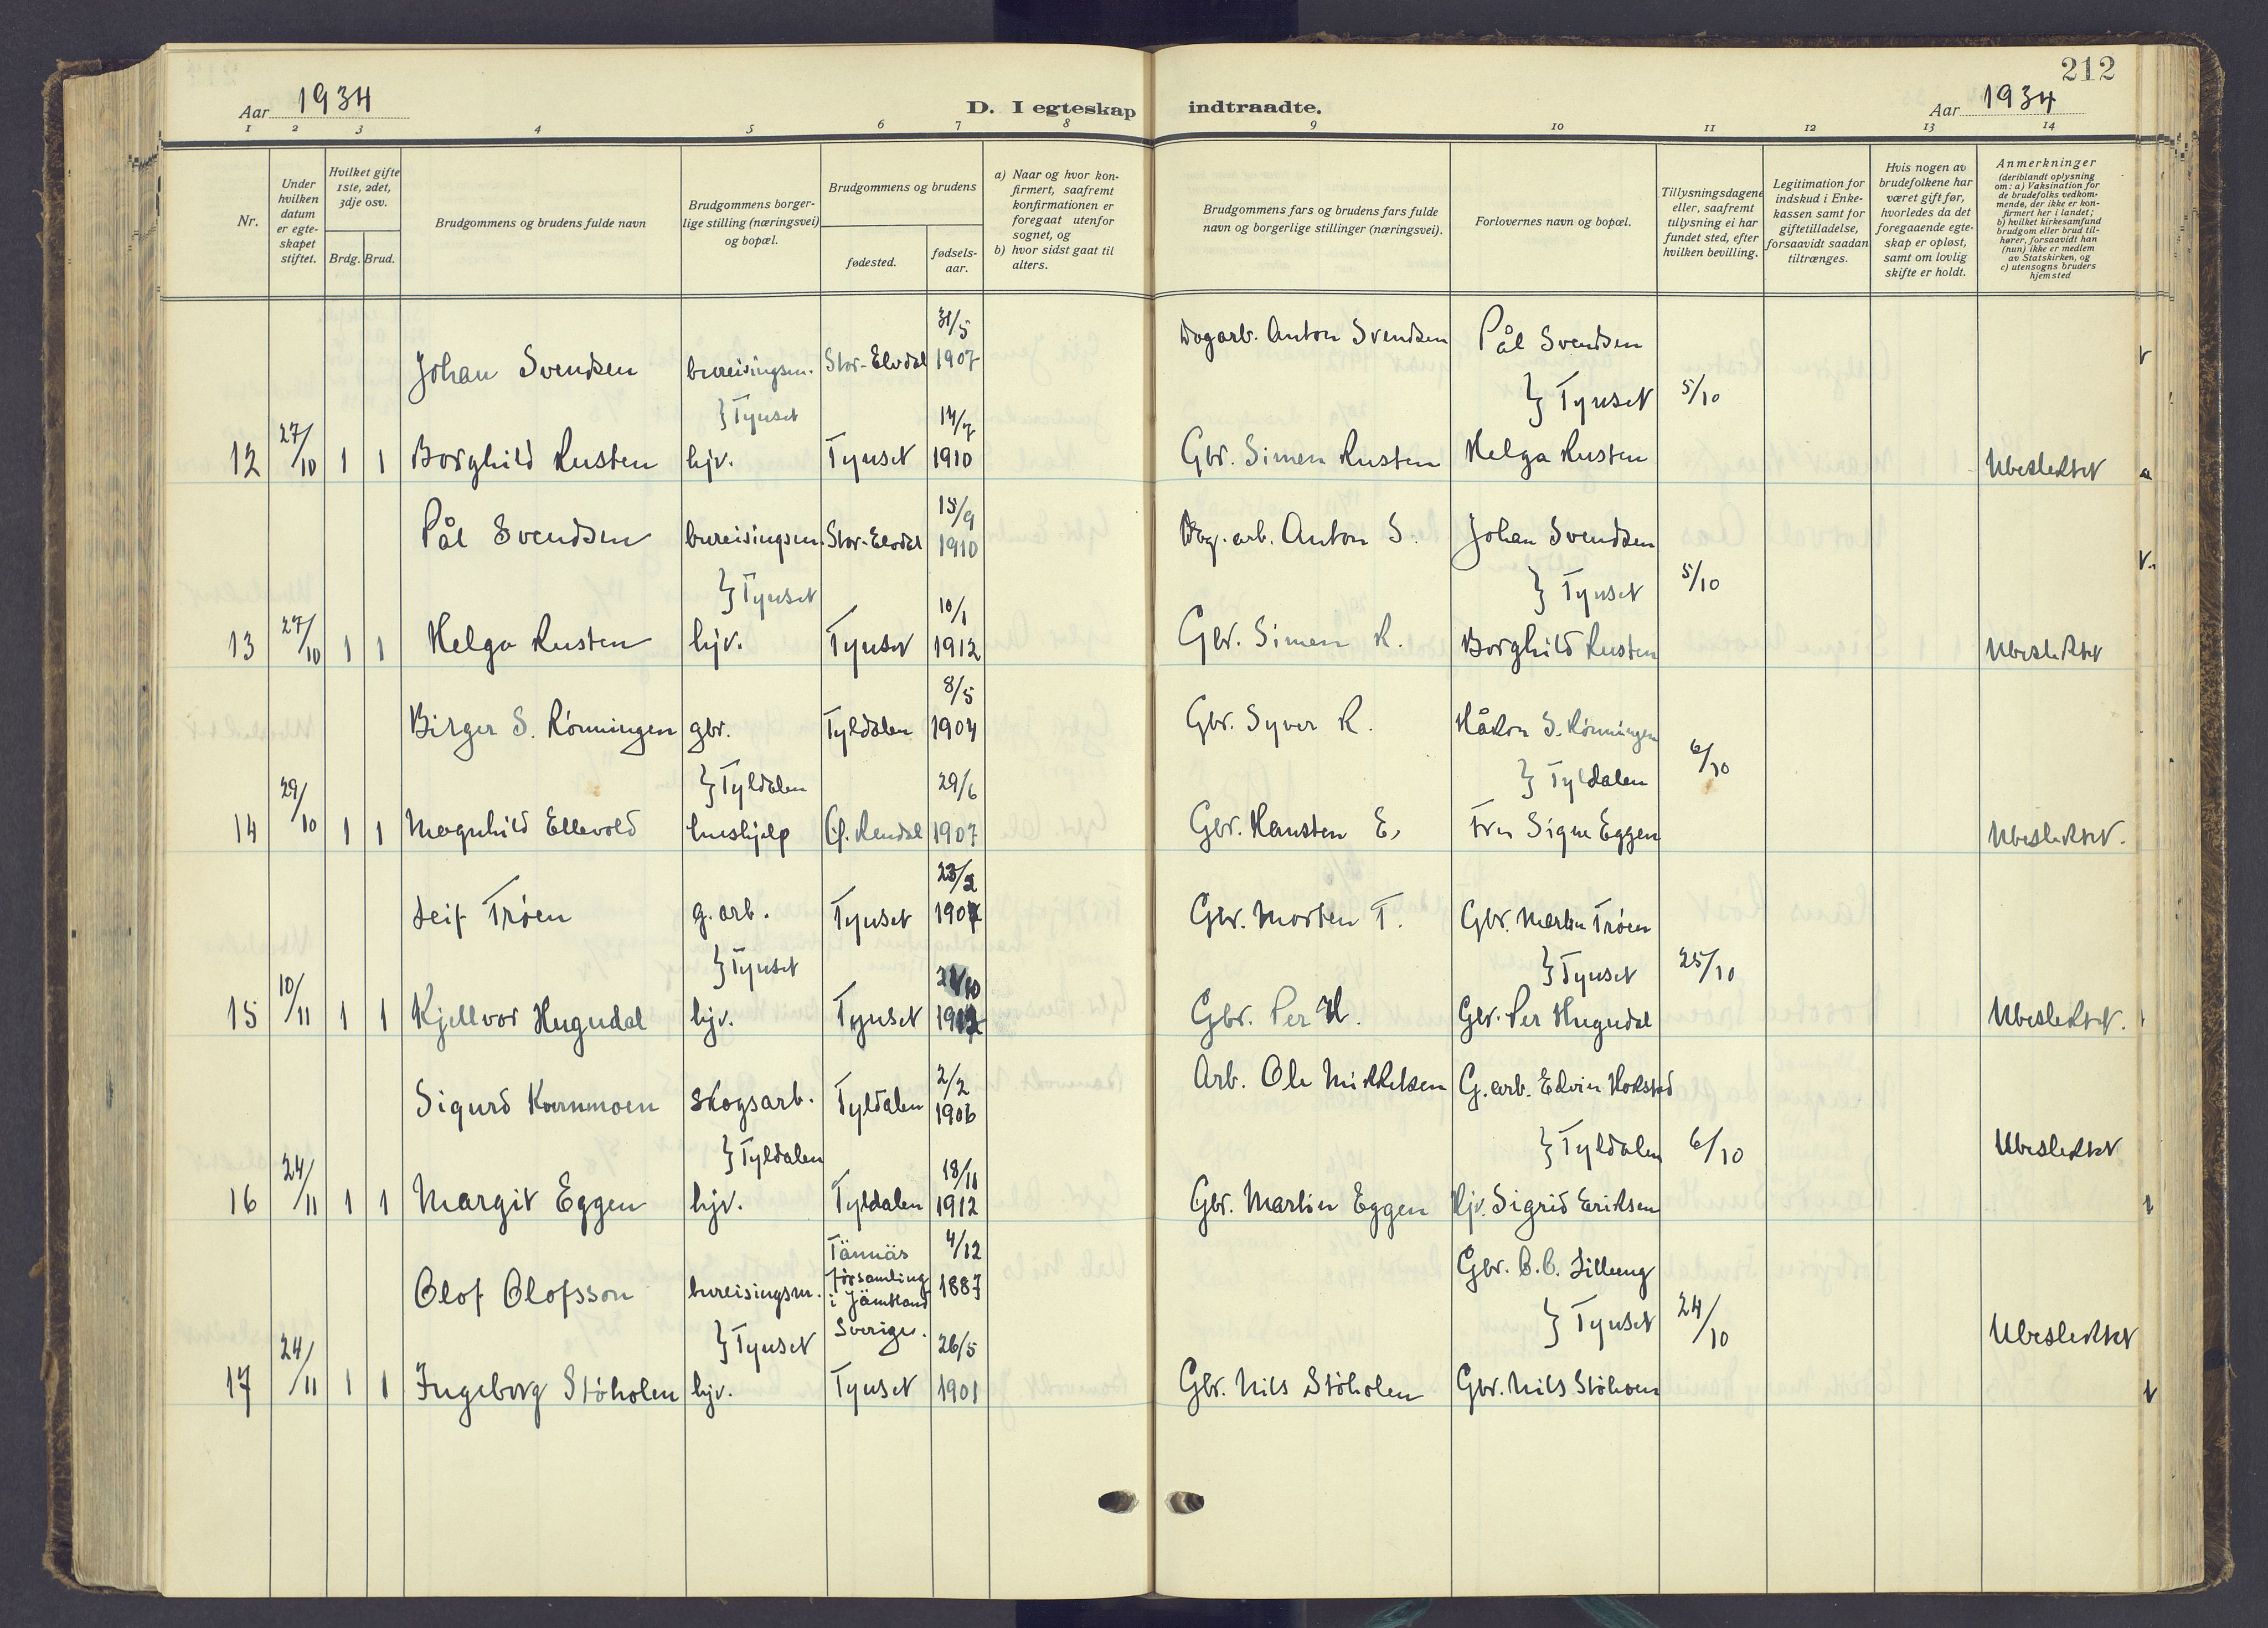 212
Aar 1934
D. I egteskap indtraadte.
Aar 1934
1 2 3 4 5 6 7 8 9 10 11 12 13 14
Nr.
Under hvilken datum er egte-skapet stiftet.
Hvilket gifte 1ste, 2det, 3dje osv.
Brdg. Brud.
Brudgommens og brudens fulde navn
Brudgommens borger-lige stilling (næringsvei) og bopæl.
Brudgommens og brudens
fødested.
fødsels-aar.
a) Naar og hvor kon-firmert, saafremt konfirmationen er foregaat utenfor sognet, og
b) hvor sidst gaat til alters.
Brudgommens fars og brudens fars fulde navn og borgerlige stillinger (næringsvei).
Forlovernes navn og bopæl.
Tillysningsdagene eller, saafremt tillysning ei har fundet sted, efter hvilken bevilling.
Legitimation for indskud i Enke-kassen samt for giftetilladelse, forsaavidt saadan tiltrænges.
Hvis nogen av brudefolkene har været gift før, hvorledes da det foregaaende egte-skap er opløst, samt om lovlig skifte er holdt.
Anmerkninger
(deriblandt oplysning om: a) Vaksination for de brudefolks vedkom-mende, der ikke er kon-firmert her i landet;
b) hvilket kirkesamfund brudgom eller brud til-hører, forsaavidt han (hun) ikke er medlem av Statskirken, og
c) utensogns bruders hjemsted
31/5
Johan Svendsen bureisingsm. Stor-Elvdal 1907 Dagarb. Anton Svendsen Pål Svendsen
} Tynset 14/7 } Tynset 5/10
12 27/10 1 1 Borghild Rusten hjv. Tynset 1910 Gbr. Simen Rusten Helga Rusten Ubeslektet
15/9
Pål Svendsen bureisingsm. Stor-Elvdal 1910 Dag.arb. Anton S. Johan Svendsen
} Tynset 10/1 } Tynset 5/10
13 27/10 1 1 Helga Rusten hjv. Tynset 1912 Gbr. Simen R. Borghild Rusten Ubeslektet
8/5
Birger S. Rønningen gbr. Tyldalen 1904 Gbr. Syver R. Håkon S. Rønningen
} Tyldalen 29/6 } Tyldalen 6/10
14 29/10 1 1 Magnhild Ellevold hushjelp Ø. Rendal 1907 Gbr. Hansten E. Fru Signe Eggen Ubeslektet.
23/2
Leif Trøen g.arb. Tynset 1907 Gbr. Morten T. Gbr. Martin Trøen
} Tynset } Tynset 25/10
15 10/11 1 1 Kjellvor Hugudal hjv. Tynset 1912 Gbr. Per H. Gbr. Per Hugudal Ubeslektet.
2/2
Sigurd Kvernmoen skogsarb. Tyldalen 1906 Arb. Ole Mikkelsen G.arb. Edvin Hokstad
} Tyldalen 18/11 } Tyldalen 6/10 Ubeslektet
16 24/11 1 1 Margit Eggen hjv. Tyldalen 1912 Gbr. Martin Eggen Hjv. Sigrid Eriksen
Tännäs 4/12
Olof Olofsson bureisingsm. församling i Jämtland Sverige. 1887 Gbr. O.O. Lilleeng
} Tynset 26/5 } Tynset 24/10 Ubeslektet
17 24/11 1 1 Ingeborg Støholen hjv. Tynset 1901 Gbr. Nils Støholen Gbr. Nils Støholen